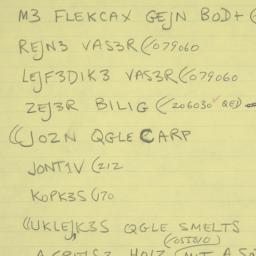 M3 FLEKCAX GEJN BOD+ (
REJN3 VAS3R (079060
LEJF3DIK3 VAS3R (079060
ZEJ3R BILIG (206030 ✓ QEJ)
((JOZN QGLE CARP
JONT1V (212
KOPK3S (170
((UKLEJK3S QGLE SMELTS
(055010)